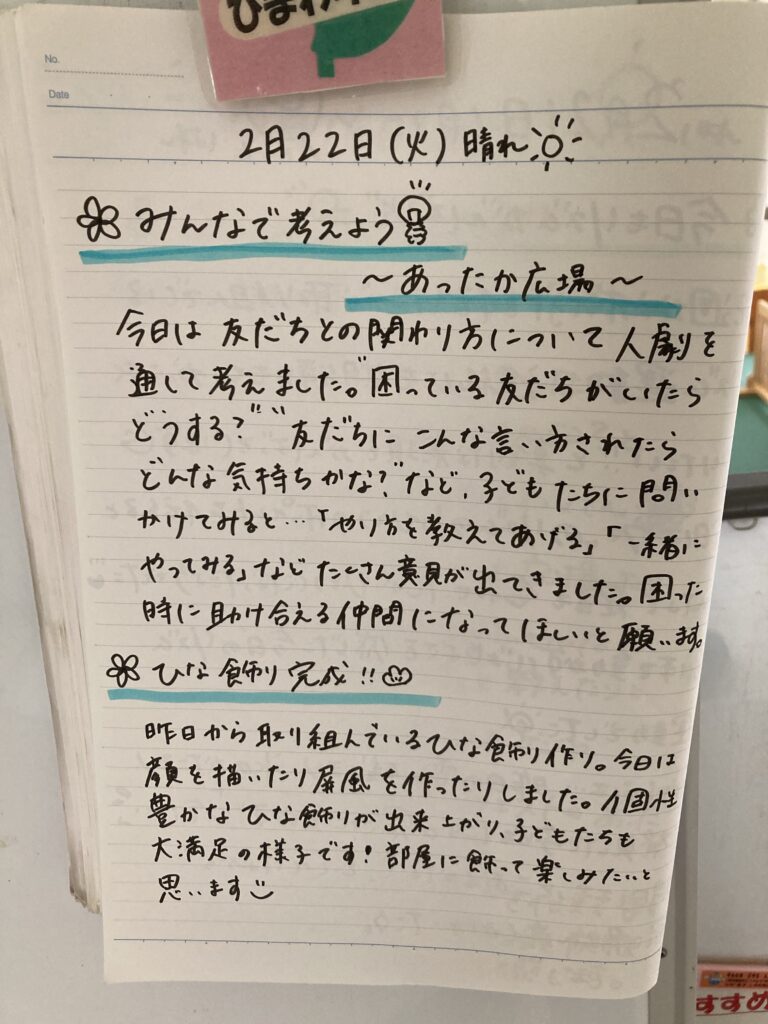 ひまわり
No.
Date
2月22日(火) 晴れ
みんなで考えよう
〜あったか広場〜
今日は友だちとの関わり方について人劇を
通して考えました。"困っている友だちがいたら
どうする?" "友だちにこんな言い方されたら
どんな気持ちかな?"など、子どもたちに問い
かけてみると…「やり方を教えてあげる」「一緒に
やってみる」などたくさん意見が出てきました。困った
時に助け合える仲間になってほしいと願います。
ひな飾り完成!!
昨日から取り組んでいるひな飾り作り。今日は
顔を描いたり屏風を作ったりしました。個性
豊かなひな飾りが出来上がり、子どもたちも
大満足の様子です!部屋に飾って楽しみたいと
思います
すすめ